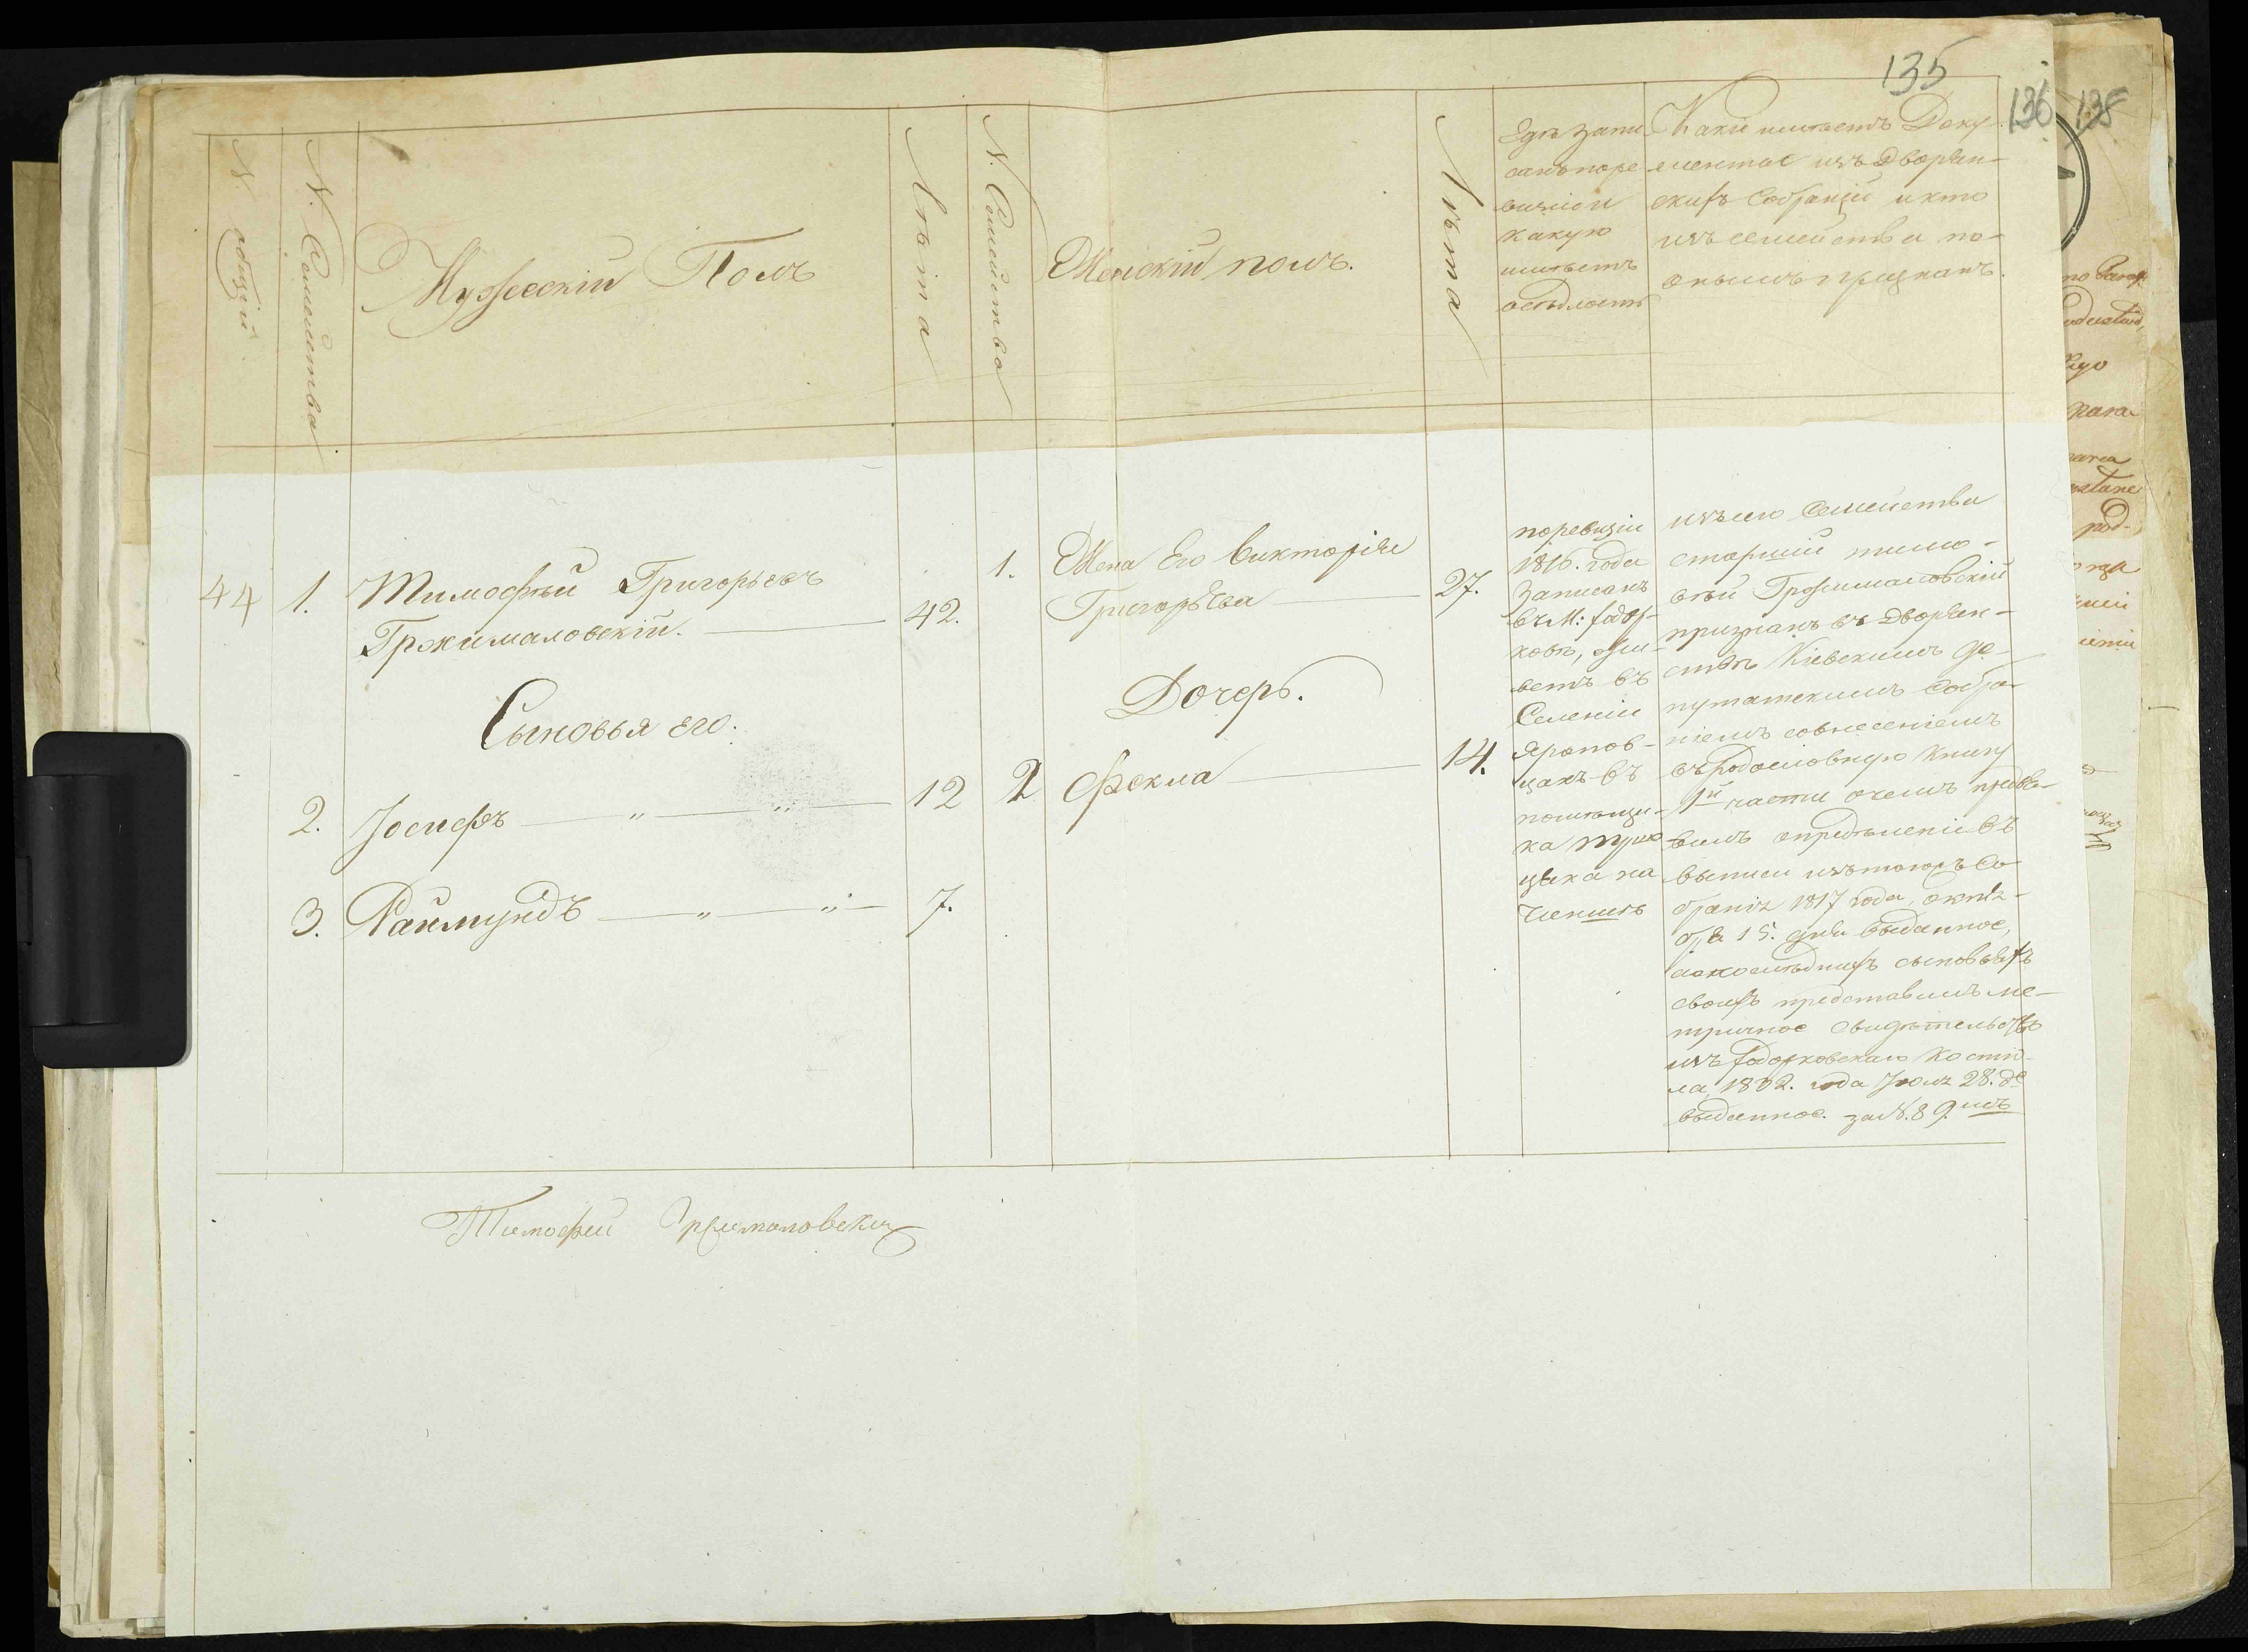 135
136
138
N. общій
N. Семейства
Мужескій Полъ
Лѣта
N. Семейства
Женскій полъ.
Лѣта
Где запи-
санъ по ре
визіи и
какую
имѣетъ
осѣдлость
Какіе имѣетъ Доку
менты изъ Дворян-
скихъ Собраній и кто
изъ семейства по
онымъ признанъ.
44
1.
Тимофѣй Григорьевъ
Гржималовскій.
42.
Сыновья его.
2.
Іосифъ
12
3.
Раймундъ
7.
1.
Жена Его Викторія
Григорьева
27.
Дочерь.
2
Фекла
14.
по ревизіи
1816. года
Записанъ
въ М: Ходор-
ковѣ, жи-
ветъ въ
Селеніи
Яропов-
цахъ въ
помѣщи-
ка
на
Чиншѣ
изъ сего Семейства
старшій Тимо-
ѳей Гржималовскій
признанъ въ Дворян-
ствѣ Кіевскимъ Де-
путатскимъ Собра-
ніемъ со внесеніемъ
въ Родословную Книгу
1й части о чемъ предъя-
вилъ опредѣленіе въ
выписи изъ того жъ Со
бранія 1817 года, октя-
бря 15. дня выданное,
а о послѣднихъ сыновьяхъ
своихъ представилъ ме-
тричное свидѣтельство
изъ Ходорковскаго Костіо-
ла, 1832. года Іюля 28. д
выданное. за N. 89.мъ
Тимофей Гржималовский